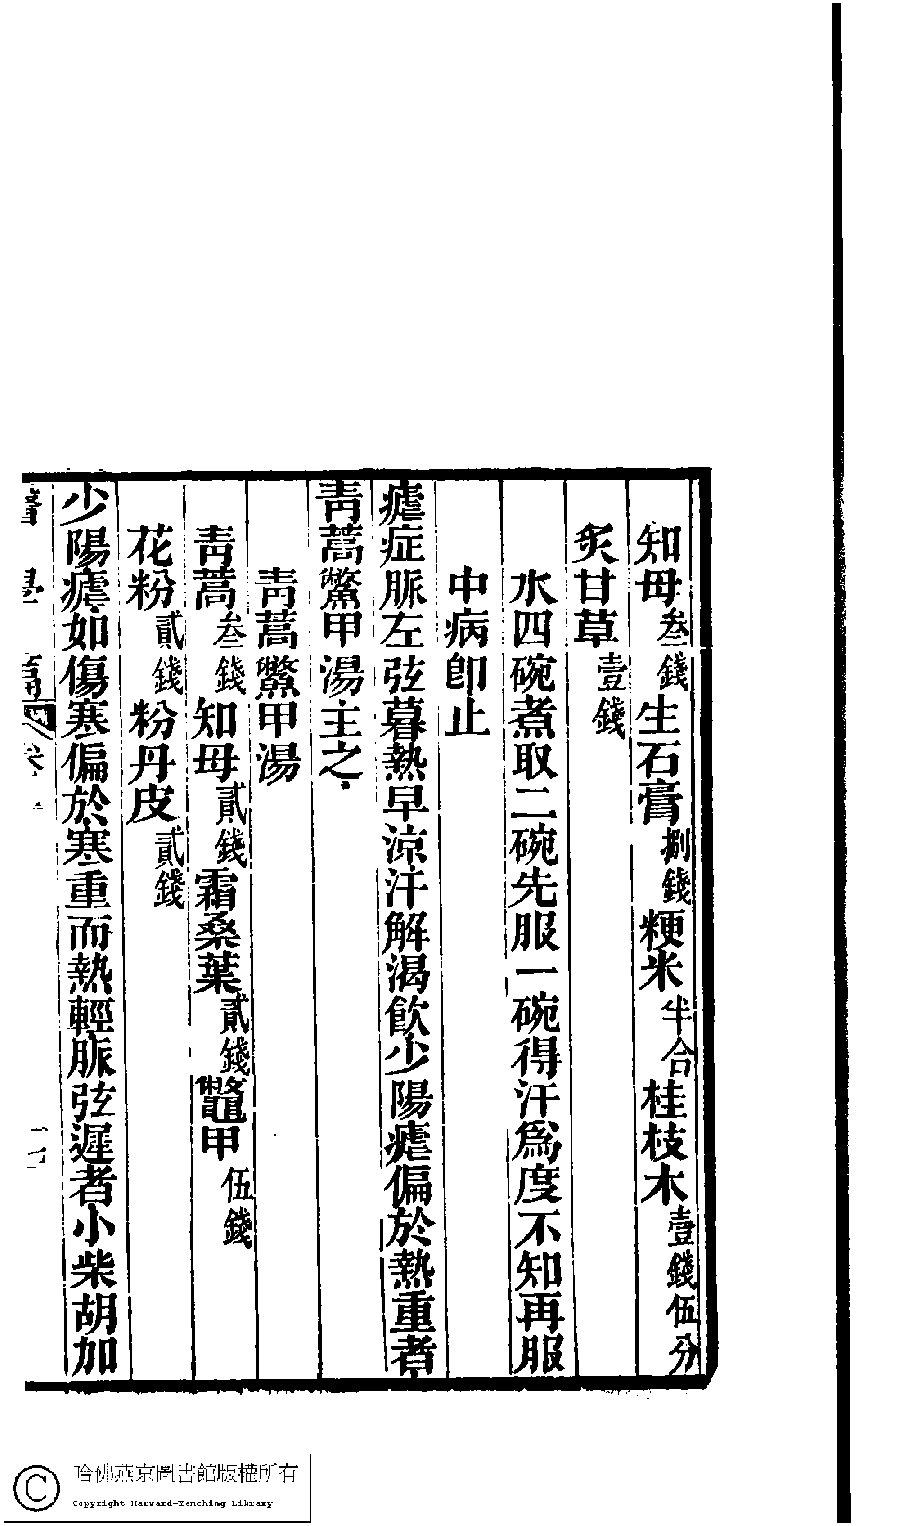 知母叁錢生石膏捌錢粳米半合桂枝木壹錢伍分
炙甘草壹錢
水四碗煮取二碗先服一碗得汗爲度不知再服
中病卽止
瘧症脈左弦暮熱早涼汗解渴飮少陽瘧偏於熱重者
靑蒿鱉甲湯主之
靑蒿鱉甲湯
靑蒿叁錢知母貳錢霜桑葉貳錢鼈甲伍錢
花粉貳錢粉丹皮貳錢
少陽瘧如傷寒偏於寒重而熱輕脈弦遲者小柴胡加
哈佛燕京圖書館版權所有
Copyright Harvard-Yenching Library